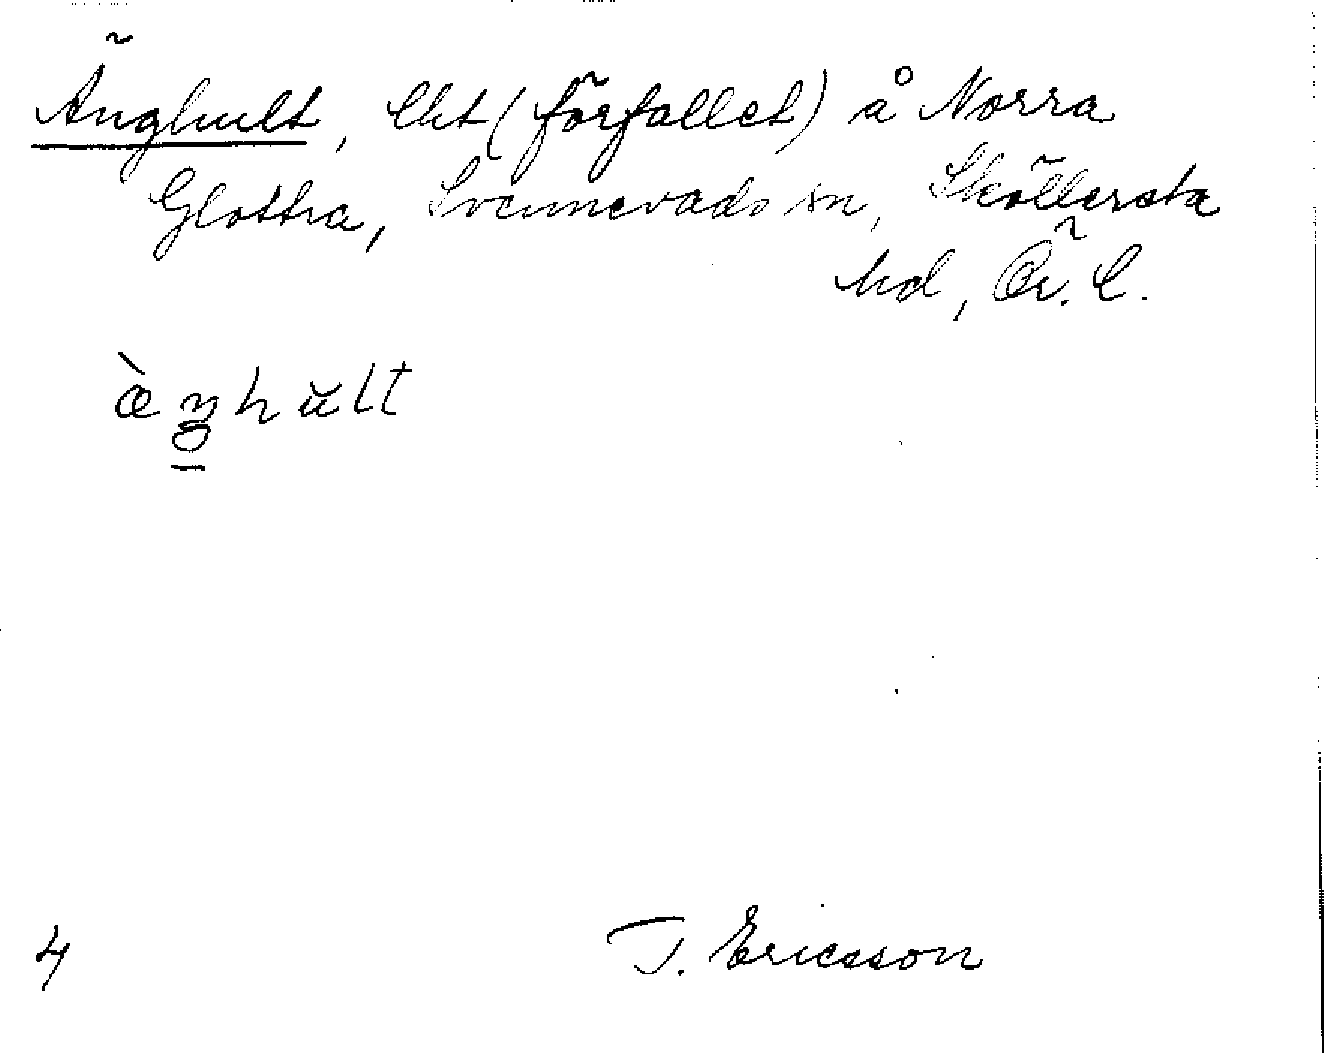 Änghult, lht (förfallet) å Norra
Glottra, Svennevads sn, Sköllersta
hd, Ör. l.
æ̀ŋhŭlt
4 T. Ericsson